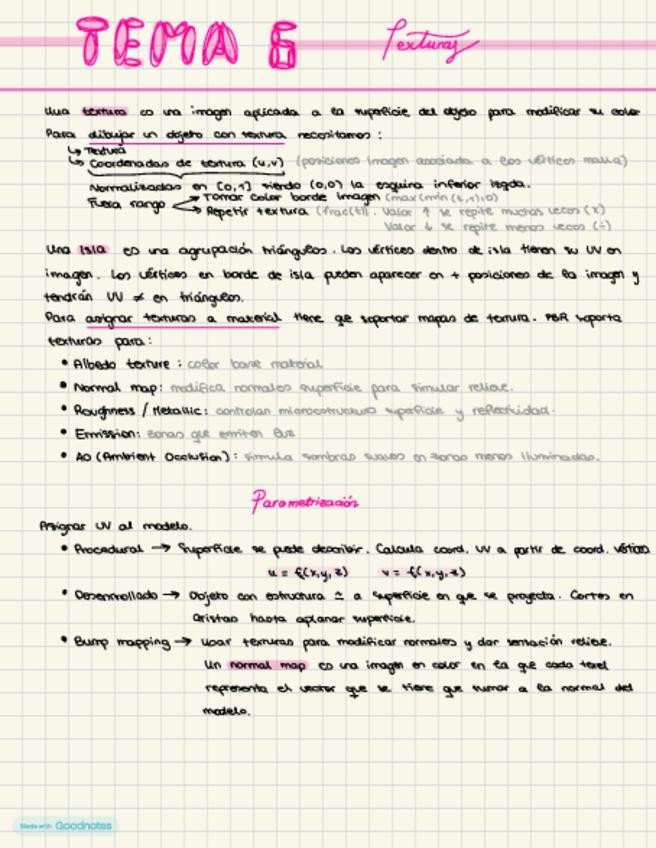 TEMA 6 Texturas
Una textura es una imagen aplicada a la superficie del objeto para modificar su color
Para dibujar un objeto con textura necesitamos :
↳ Textura
↳ Coordenadas de textura (u,v) (posiciones imagen asociada a los vértices malla)
Normalizadas en [0,1] siendo (0,0) la esquina inferior izqda.
Fuera rango → Tomar color borde imagen (max(min(t,1),0)
→ Repetir textura (frac(t)). Valor ↑ se repite muchas veces (x)
Valor ↓ se repite menos veces (÷)
Una isla es una agrupación triángulos. Los vértices dentro de isla tienen su UV en
imagen. Los vértices en borde de isla pueden aparecer en + posiciones de la imagen y
tendrán UV ≠ en triángulos.
Para asignar texturas a material tiene que soportar mapas de textura. PBR soporta
texturas para:
• Albedo texture : color base material
• Normal map: modifica normales superficie para simular relieve.
• Roughness / Metallic: controlan microestructura superficie y reflectividad.
• Emission: zonas que emiten luz
• AO (Ambient Occlusion) : simula sombras suaves en zonas menos iluminadas.
Parametrización
Asignar UV al modelo.
• Procedural → Superficie se puede describir. Calcula coord. UV a partir de coord. vértices
u = f(x,y,z) v = f(x,y,z)
• Desenrollado → Objeto con estructura ≃ a superficie en que se proyecta. Cortes en
aristas hasta aplanar superficie.
• Bump mapping → usar texturas para modificar normales y dar sensación relieve.
Un normal map es una imagen en color en la que cada texel
representa el vector que se tiene que sumar a la normal del
modelo.
Made with Goodnotes